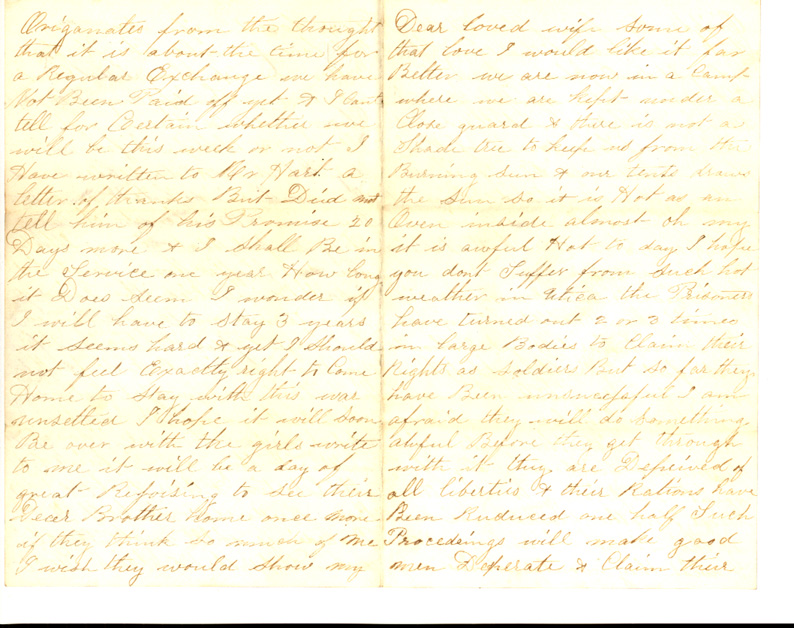 Origanates from the thought
that it is about the time for
a Regular Exchange we have
Not Been Paid off yet & I Cant
tell for Certain whether we
will be this week or not I
Have written to Mr Hart a
letter of thanks But Did not
tell him of his Promise 20
Days more & I shall Be in
the Service one year How long
it Does seem I wonder if
I will have to stay 3 years
it seems hard & yet I should
not feel Exactly right to Come
Home to stay with this war
unsettled I hope it will soon
Be over with the girls write
to me it will be a day of
great Rejoising to see their
Dear Brother Home once more
if they think so much of me
I wish they would show my
Dear loved wife some of
that love I would like it far
Better we are now in a Camp
where we are kept under a
Close guard & there is not a
Shade tree to keep us from the
Burning sun & our tents draws
the sun so it is Hot as an
Oven inside almost oh my
it is awful Hot to day I hope
you dont Suffer from such hot
weather in Utica the Prisoners
have turned out 2 or 3 times
in large Bodies to Claim their
Rights as Soldiers But so far they
have Been unsuccessful I am
afraid they will do Something
awful Before they get through
with it they are Depeived of
all liberties & their Rations have
Been Ruduced one half Such
Proceedings will make good
men Desperate & Claim their